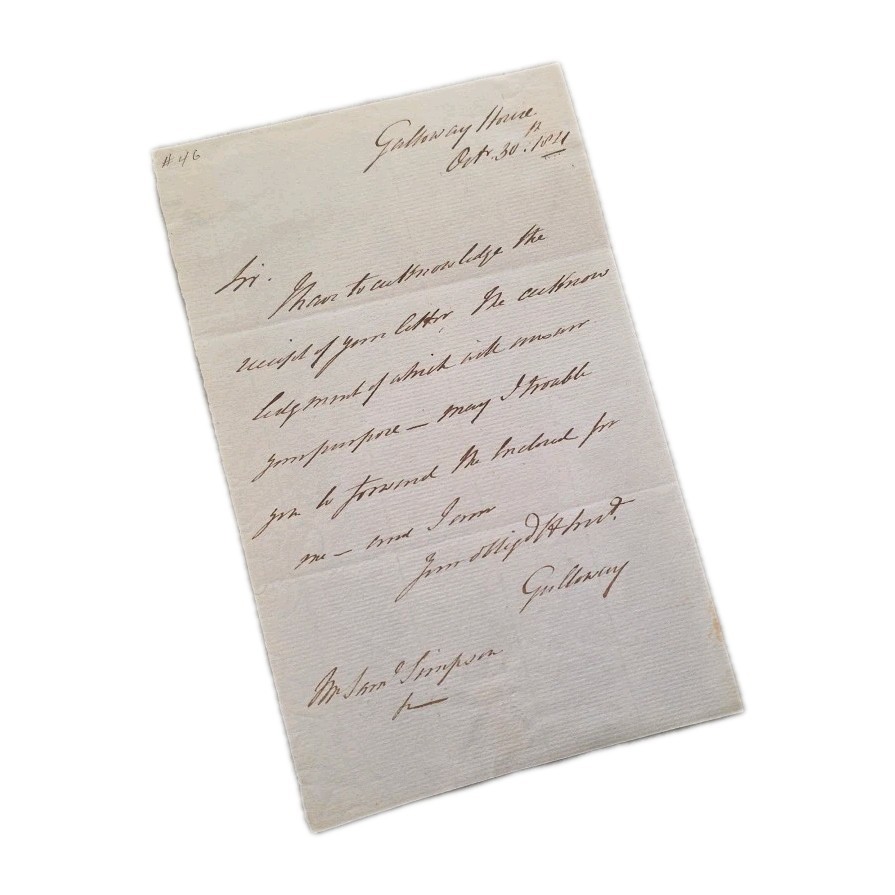 # 46
Galloway House
Octr. 30th. 1811
Sir.
I have to acknowledge the
receipt of your letter, the acknow
ledgment of which will answer
your purpose – may I trouble
you to forward the Inclosed for
me – and I am
Your obligd H Servt.
Galloway
Mr Saml Simpson